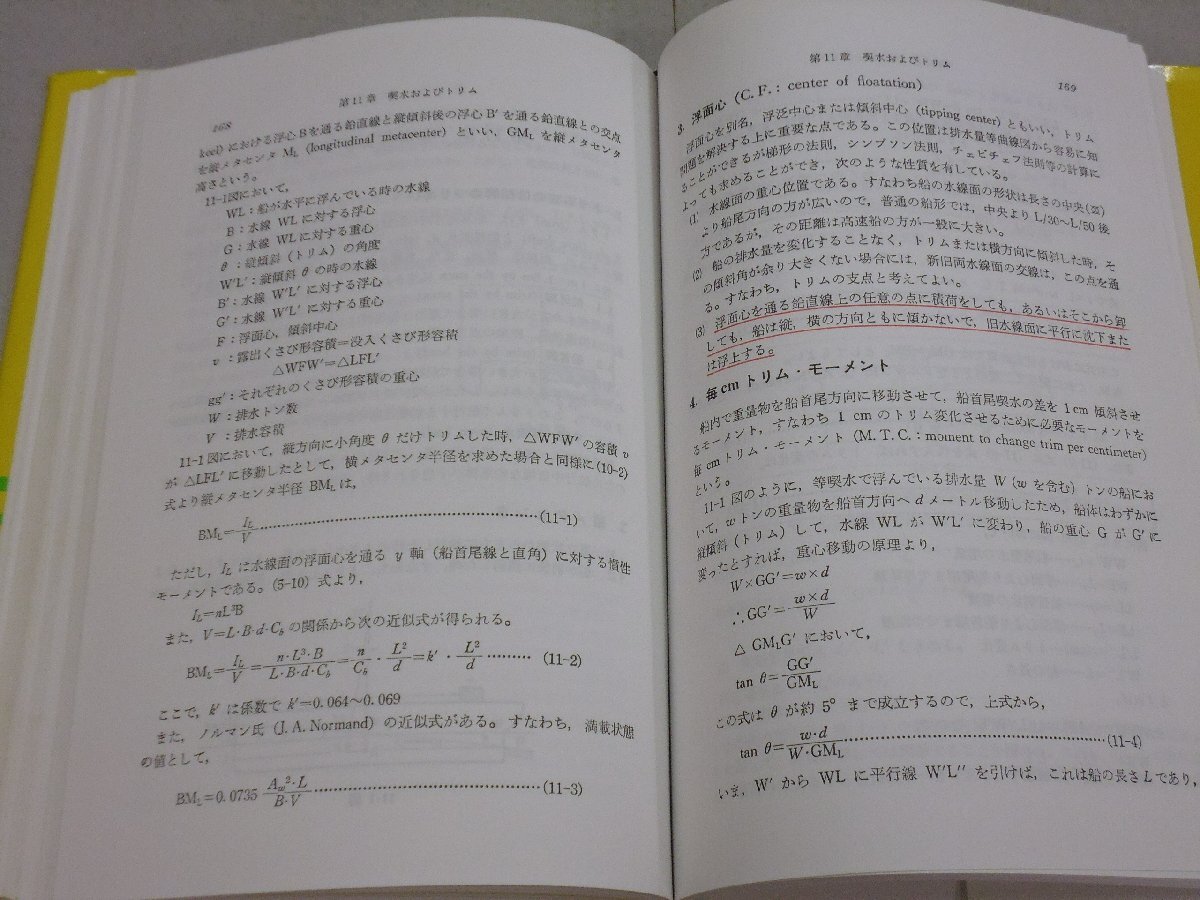 168
第11章 喫水およびトリム
keel) における浮心Bを通る鉛直線と縦傾斜後の浮心 B′ を通る鉛直線との交点
を縦メタセンタ ML (longitudinal metacenter) といい, GML を縦メタセンタ
高さという。
11-1図において,
WL:船が水平に浮んでいる時の水線
B:水線 WL に対する浮心
G:水線 WL に対する重心
θ:縦傾斜(トリム)の角度
W′L′:縦傾斜 θ の時の水線
B′:水線 W′L′ に対する浮心
G′:水線 W′L′ に対する重心
F:浮面心, 傾斜中心
v:露出くさび形容積=没入くさび形容積
△WFW′=△LFL′
gg′:それぞれのくさび形容積の重心
W:排水トン数
V:排水容積
11-1図において, 縦方向に小角度 θ だけトリムした時, △WFW′ の容積 v
が △LFL′ に移動したとして, 横メタセンタ半径を求めた場合と同様に(10-2)
式より縦メタセンタ半径 BML は,
BML=IL/V ……(11-1)
ただし, IL は水線面の浮面心を通る y 軸(船首尾線と直角)に対する慣性
モーメントである。(5-10) 式より,
IL=nL³B
また, V=L·B·d·Cb の関係から次の近似式が得られる。
BML=IL/V=n·L³·B/L·B·d·Cb=n/Cb·L²/d=k′·L²/d ……(11-2)
ここで, k′ は係数で k′=0.064〜0.069
また, ノルマン氏 (J. A. Normand) の近似式がある。すなわち, 満載状態
の値として,
BML=0.0735 Aw²·L/B·V ……(11-3)
第11章 喫水およびトリム
169
3. 浮面心 (C. F.: center of floatation)
浮面心を別名, 浮泛中心または傾斜中心 (tipping center) ともいい, トリム
問題を解決する上に重要な点である。この位置は排水量等曲線図から容易に知
ることができるが梯形の法則, シンプソン法則, チェビチェフ法則等の計算に
よっても求めることができ, 次のような性質を有している。
(1) 水線面の重心位置である。すなわち船の水線面の形状は長さの中央(⊗)
より船尾方向の方が広いので, 普通の船形では, 中央より L/30〜L/50 後
方であるが, その距離は高速船の方が一般に大きい。
(2) 船の排水量を変化することなく, トリムまたは横方向に傾斜した時, そ
の傾斜角が余り大きくない場合には, 新旧両水線面の交線は, この点を通
る。すなわち, トリムの支点と考えてよい。
(3) 浮面心を通る鉛直線上の任意の点に積荷をしても, あるいはそこから卸
しても, 船は縦, 横の方向ともに傾かないで, 旧水線面に平行に沈下また
は浮上する。
4. 毎cmトリム・モーメント
船内で重量物を船首尾方向に移動させて, 船首尾喫水の差を 1cm 傾斜させ
るモーメント, すなわち 1 cm のトリム変化させるために必要なモーメントを
毎cmトリム・モーメント (M. T. C.: moment to change trim per centimeter)
という。
11-1 図のように, 等喫水で浮んでいる排水量 W (w を含む) トンの船にお
いて, w トンの重量物を船首方向へ d メートル移動したため, 船体はわずかに
縦傾斜(トリム)して, 水線 WL が W′L′ に変わり, 船の重心 G が G′ に
変ったとすれば, 重心移動の原理より,
W×GG′=w×d
∴GG′=w×d/W
△ GMLG′ において,
tan θ=GG′/GML
この式は θ が約 5° まで成立するので, 上式から,
tan θ=w·d/W·GML ……(11-4)
いま, W′ から WL に平行線 W′L″ を引けば, これは船の長さLであり,